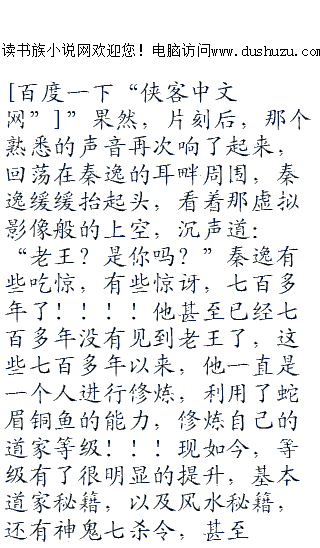 读书族小说网欢迎您！电脑访问www.dushuzu.com
[百度一下“侠客中文
网”]”果然，片刻后，那个
熟悉的声音再次响了起来，
回荡在秦逸的耳畔周围，秦
逸缓缓抬起头，看着那虚拟
影像般的上空，沉声道：
“老王？是你吗？”秦逸有
些吃惊，有些惊讶，七百多
年了！！！！他甚至已经七
百多年没有见到老王了，这
些七百多年以来，他一直是
一个人进行修炼，利用了蛇
眉铜鱼的能力，修炼自己的
道家等级！！！现如今，等
级有了很明显的提升，基本
道家秘籍，以及风水秘籍，
还有神鬼七杀令，甚至